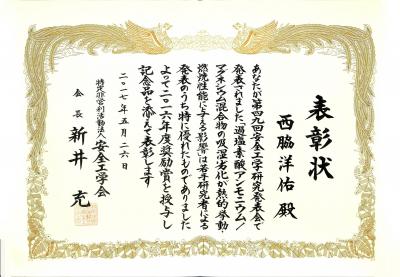 表彰状
西脇洋佑 殿
あなたが第四九回安全工学研究発表会で
発表されました「過塩素酸アンモニウム/
マグネシウム混合物の吸湿劣化が熱的挙動・
燃焼性能に与える影響」は若手研究者による
発表のうち特に優れたものでありました
よって二〇一六年度奨励賞を授与し
記念品を添えて表彰します
二〇一七年五月二六日
特定非営利活動法人 安全工学会
会長 新井 充